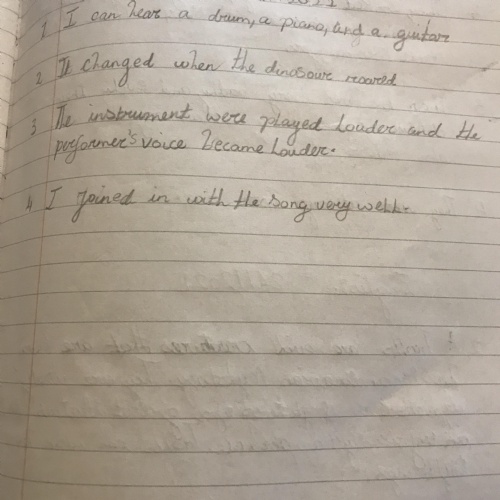 1 I can hear a drum, a piano, and a guitar
2 It changed when the dinosour roared
3 The instrument were played louder and the
performer's voice became louder.
4 I joined in with the song very well.